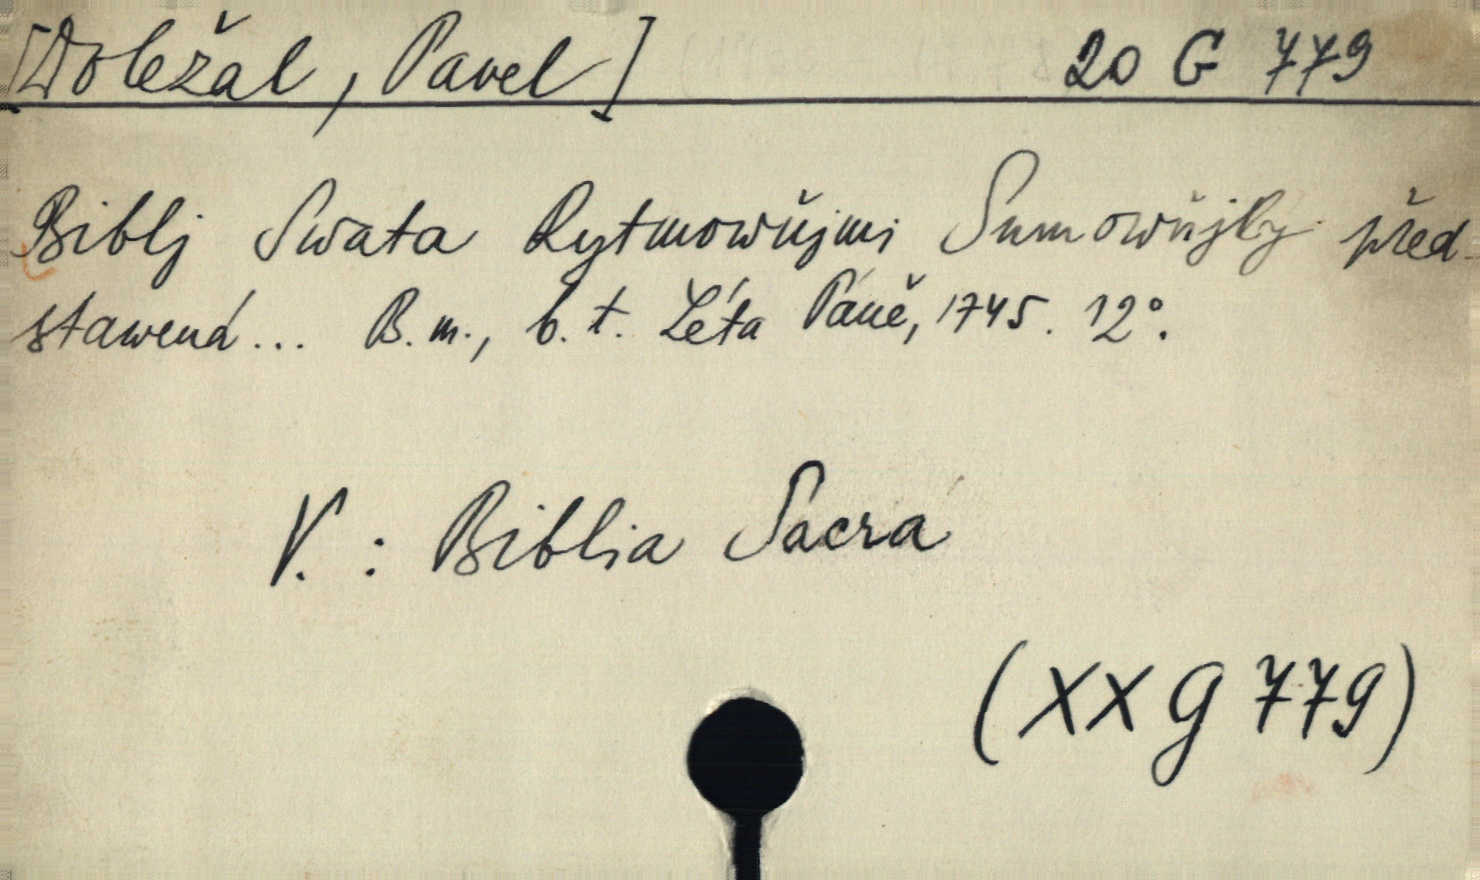 [Doležal, Pavel] 20 G 779
Biblj Swata Rytmowňjmi Sumowňjky před-
stawená... B. m., b. t. Léta Páně, 1745. 12°.
V. : Biblia Sacra
(XX G 779)